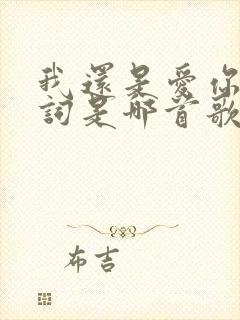 我還是愛你
詞是哪首歌
布吉